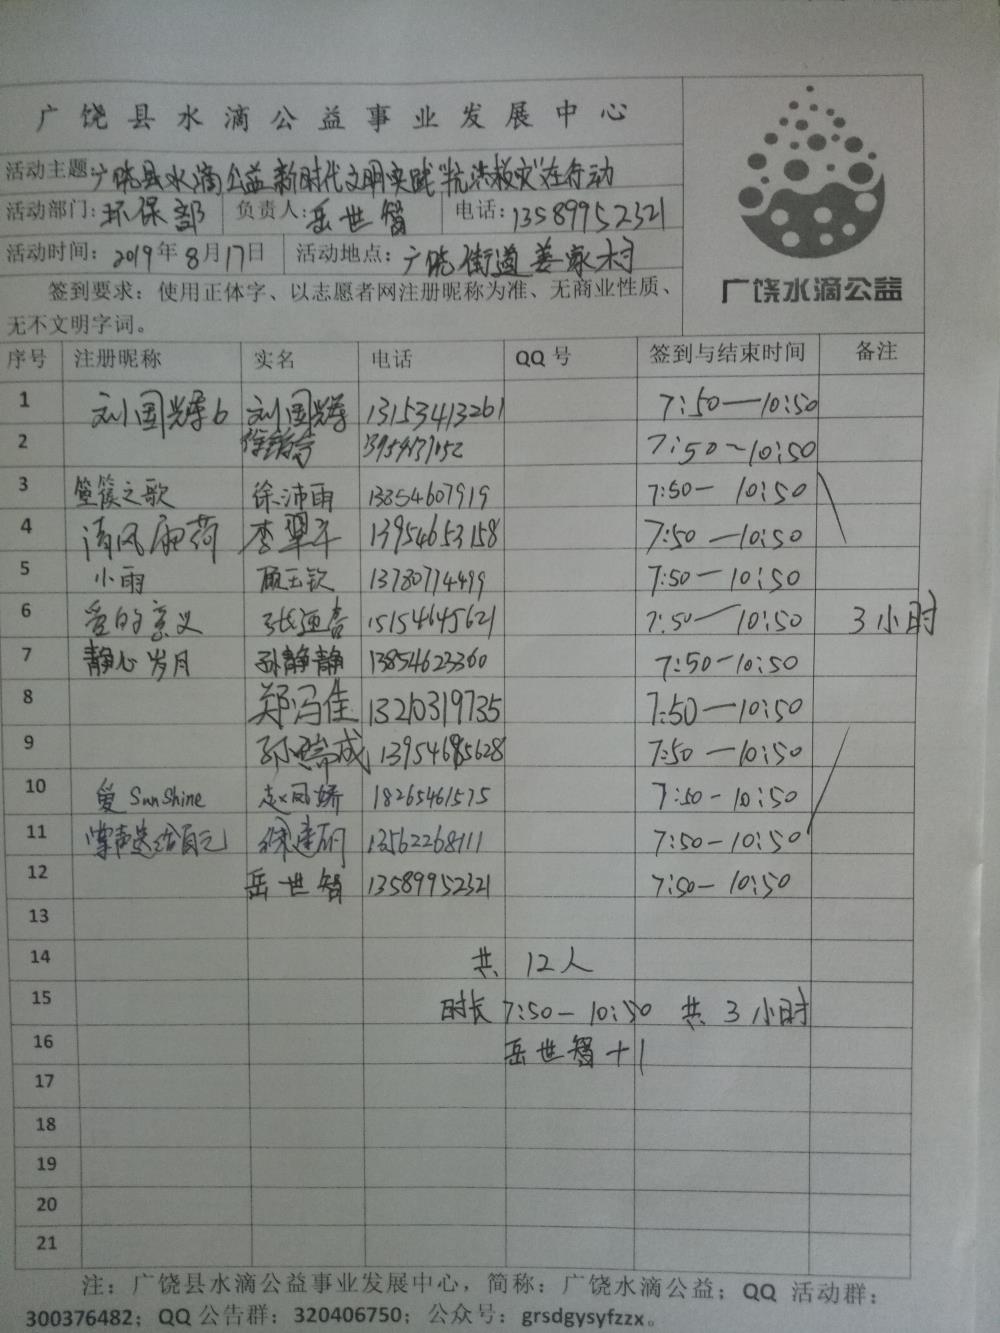 广饶县水滴公益事业发展中心
活动主题:广饶县水滴公益新时代文明实践"抗洪救灾"在行动
活动部门:环保部 负责人:岳世智 电话:13589952321
活动时间:2019年8月17日 活动地点:广饶街道姜家村
广饶水滴公益
签到要求:使用正体字、以志愿者网注册昵称为准、无商业性质、
无不文明字词。
序号 注册昵称 实名 电话 QQ号 签到与结束时间 备注
1 刘国辉6 刘国辉 13153413261 7:50—10:50
2 7:50—10:50
3 箜篌之歌 徐沛雨 13854607919 7:50—10:50
4 清风雨荷 李翠平 13954653158 7:50—10:50
5 小雨 顾玉钦 13780774499 7:50—10:50
6 爱的意义 张延喜 15154645621 7:50—10:50 3小时
7 静心岁月 孙静静 13854623360 7:50-10:50
8 郑冯佳 13210319735 7:50—10:50
9 7:50—10:50
10 爱SunShine 赵凤娇 18265461575 7:50-10:50
11 掌声送给自己 13562268111 7:50-10:50
12 岳世智 13589952321 7:50—10:50
13
14 共12人
15 时长7:50—10:50 共3小时
16 岳世智+1
17
18
19
20
21
注:广饶县水滴公益事业发展中心,简称:广饶水滴公益;QQ活动群:
300376482;QQ公告群:320406750;公众号:grsdgysyfzzx。